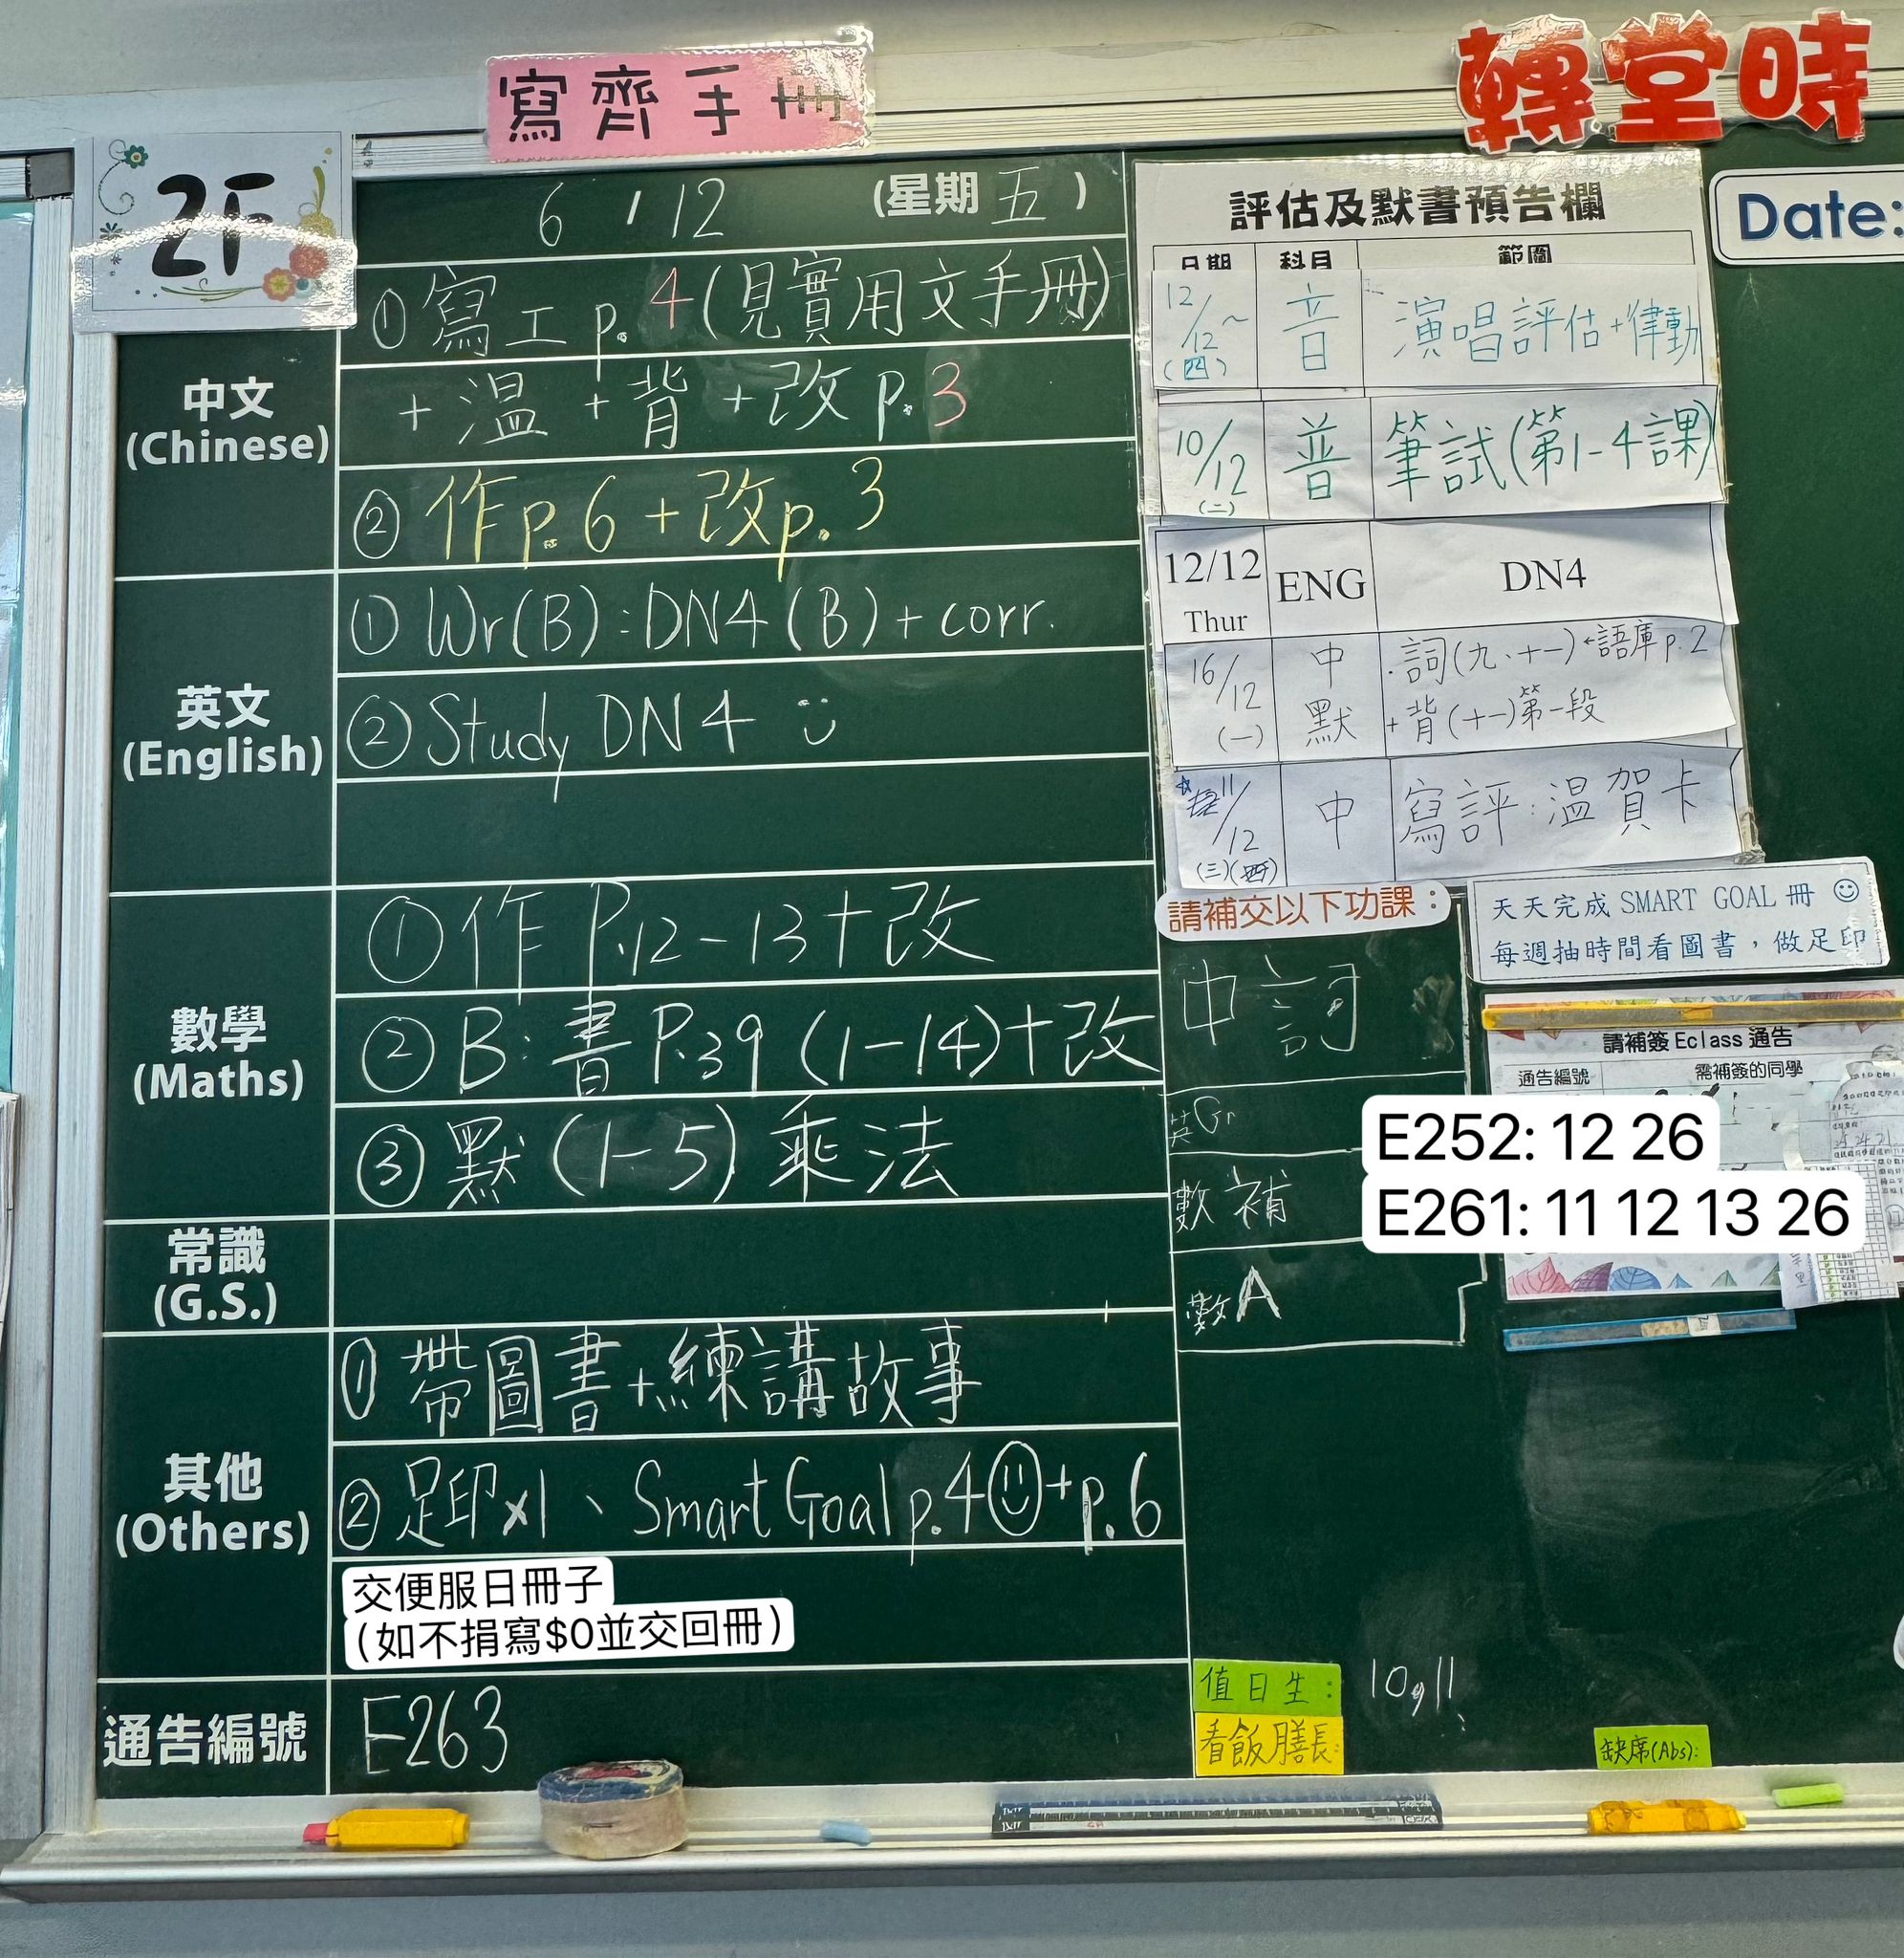 寫齊手冊
轉堂時
2F
6 / 12 (星期五)
中文
(Chinese)
①寫工p.4(見實用文手冊)
+溫+背+改p.3
②作p.6+改p.3
英文
(English)
①Wr(B):DN4(B)+corr.
②Study DN4
數學
(Maths)
①作P.12-13+改
②B:書P.39(1-14)+改
③默(1-5)乘法
常識
(G.S.)
其他
(Others)
①帶圖書+練講故事
②足印x1、Smart Goal p.4+p.6
交便服日冊子
(如不捐寫$0並交回冊)
通告編號
E263
評估及默書預告欄
日期 科目 範圍
12/12~(四) 音 演唱評估+律動
10/12(二) 普 筆試(第1-4課)
12/12 Thur ENG DN4
16/12(一) 中默 .詞(九、十一)←語庫p.2
+背(十一)第一段
11/12(三) 中 寫評:溫賀卡
Date:
請補交以下功課:
中詞
英Gr
數補
數A
天天完成 SMART GOAL 冊
每週抽時間看圖書，做足印
請補簽 Eclass 通告
通告編號 需補簽的同學
E252: 12 26
E261: 11 12 13 26
值日生: 10,11
看飯膳長:
缺席(Abs):